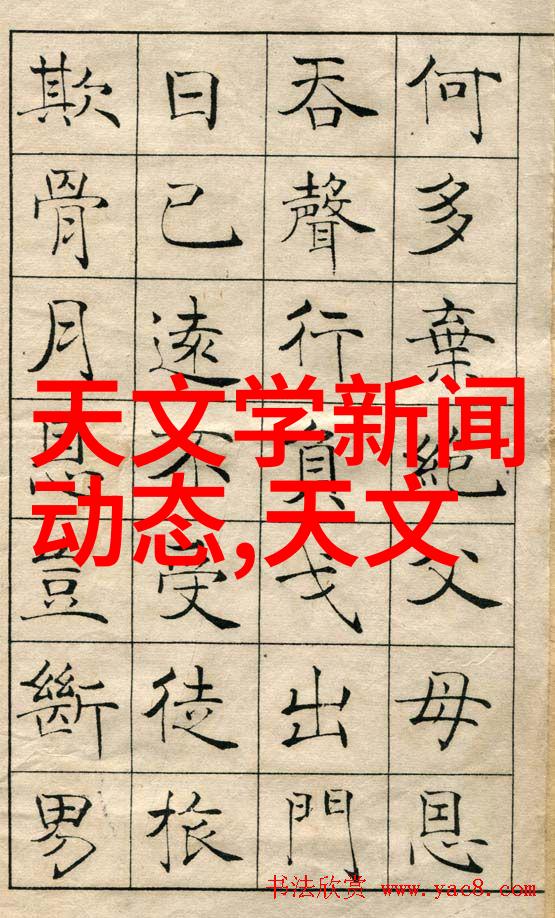 何多棄絶父母恩
吞聲行負戈出門
日已遠不受徒旅
欺骨月恩豈斷男
天文学新闻
动态,天文
书法欣赏 www.yac8.com